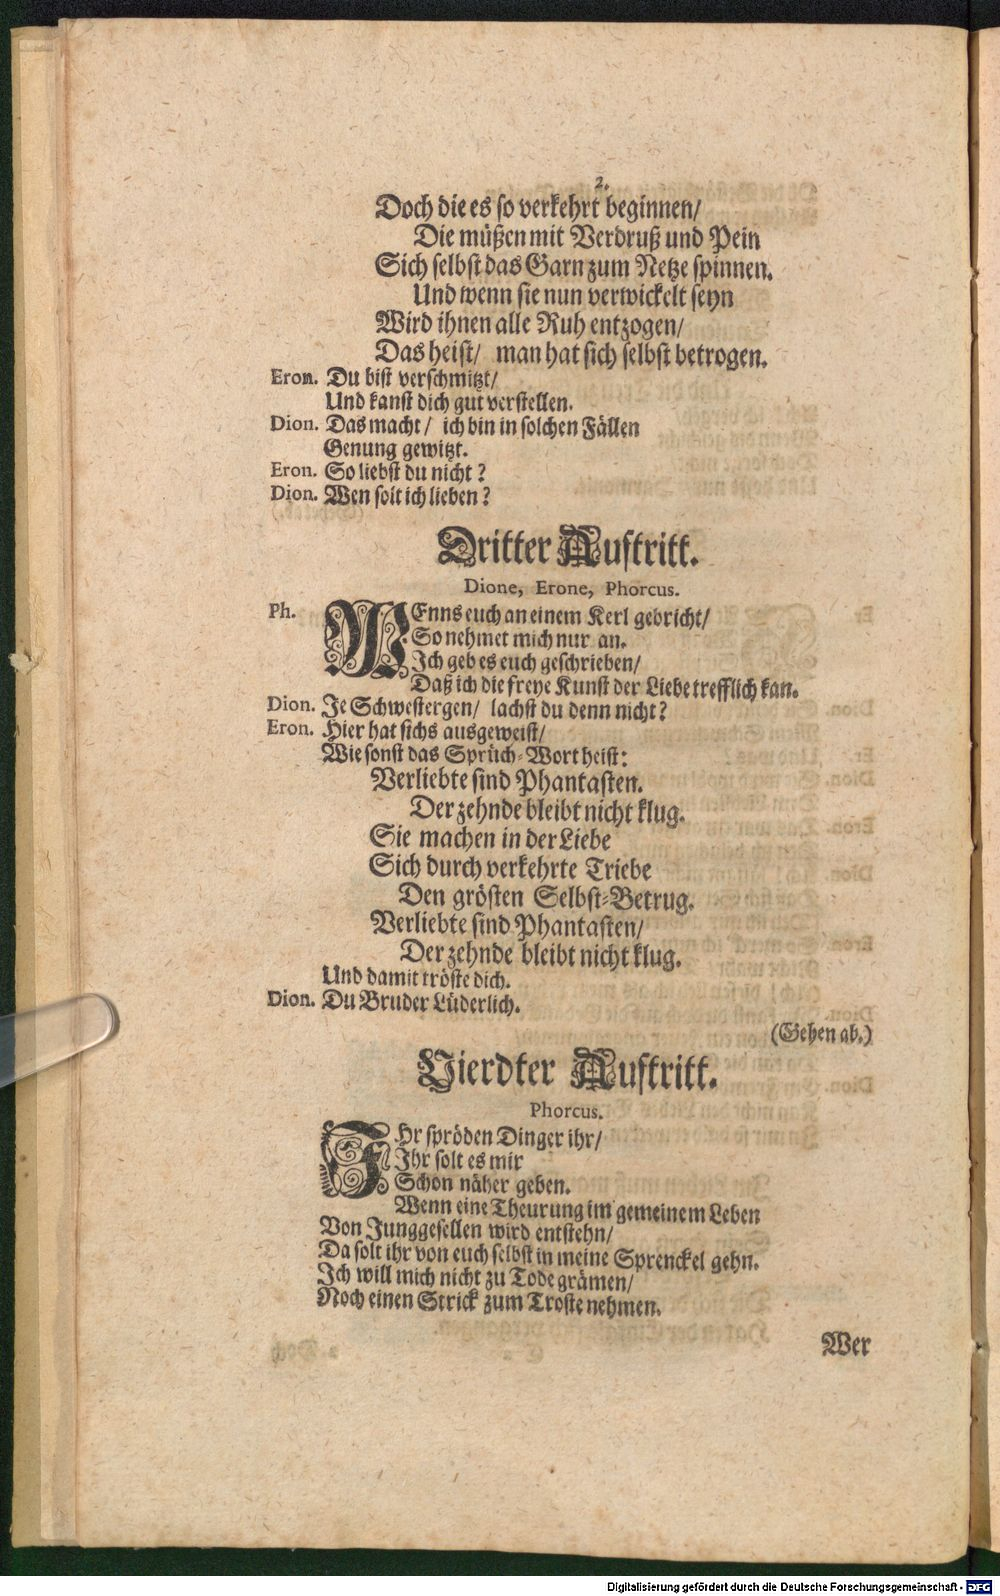 2.
Doch die es so verkehrt beginnen/
Die müßen mit Verdruß und Pein
Sich selbst das Garn zum Netze spinnen.
Und wenn sie nun verwickelt seyn
Wird ihnen alle Ruh entzogen/
Das heist/ man hat sich selbst betrogen.
Eron. Du bist verschmitzt/
Und kanst dich gut verstellen.
Dion. Das macht/ ich bin in solchen Fällen
Genung gewitzt.
Eron. So liebst du nicht?
Dion. Wen solt ich lieben?
Dritter Auftritt.
Dione, Erone, Phorcus.
Ph. WEnns euch an einem Kerl gebricht/
So nehmet mich nur an.
Ich geb es euch geschrieben/
Daß ich die freye Kunst der Liebe trefflich kan.
Dion. Je Schwestergen/ lachst du denn nicht?
Eron. Hier hat sichs ausgeweist/
Wie sonst das Sprüch-Wort heist:
Verliebte sind Phantasten.
Der zehnde bleibt nicht klug.
Sie machen in der Liebe
Sich durch verkehrte Triebe
Den grösten Selbst-Betrug.
Verliebte sind Phantasten/
Der zehnde bleibt nicht klug.
Und damit tröste dich.
Dion. Du Bruder Lüderlich.
(Gehen ab.)
Vierdter Auftritt.
Phorcus.
IHr spröden Dinger ihr/
Ihr solt es mir
Schon näher geben.
Wenn eine Theurung im gemeinem Leben
Von Junggesellen wird entstehn/
Da solt ihr von euch selbst in meine Sprenckel gehn.
Ich will mich nicht zu Tode grämen/
Noch einen Strick zum Troste nehmen.
Wer
Digitalisierung gefördert durch die Deutsche Forschungsgemeinschaft - DFG